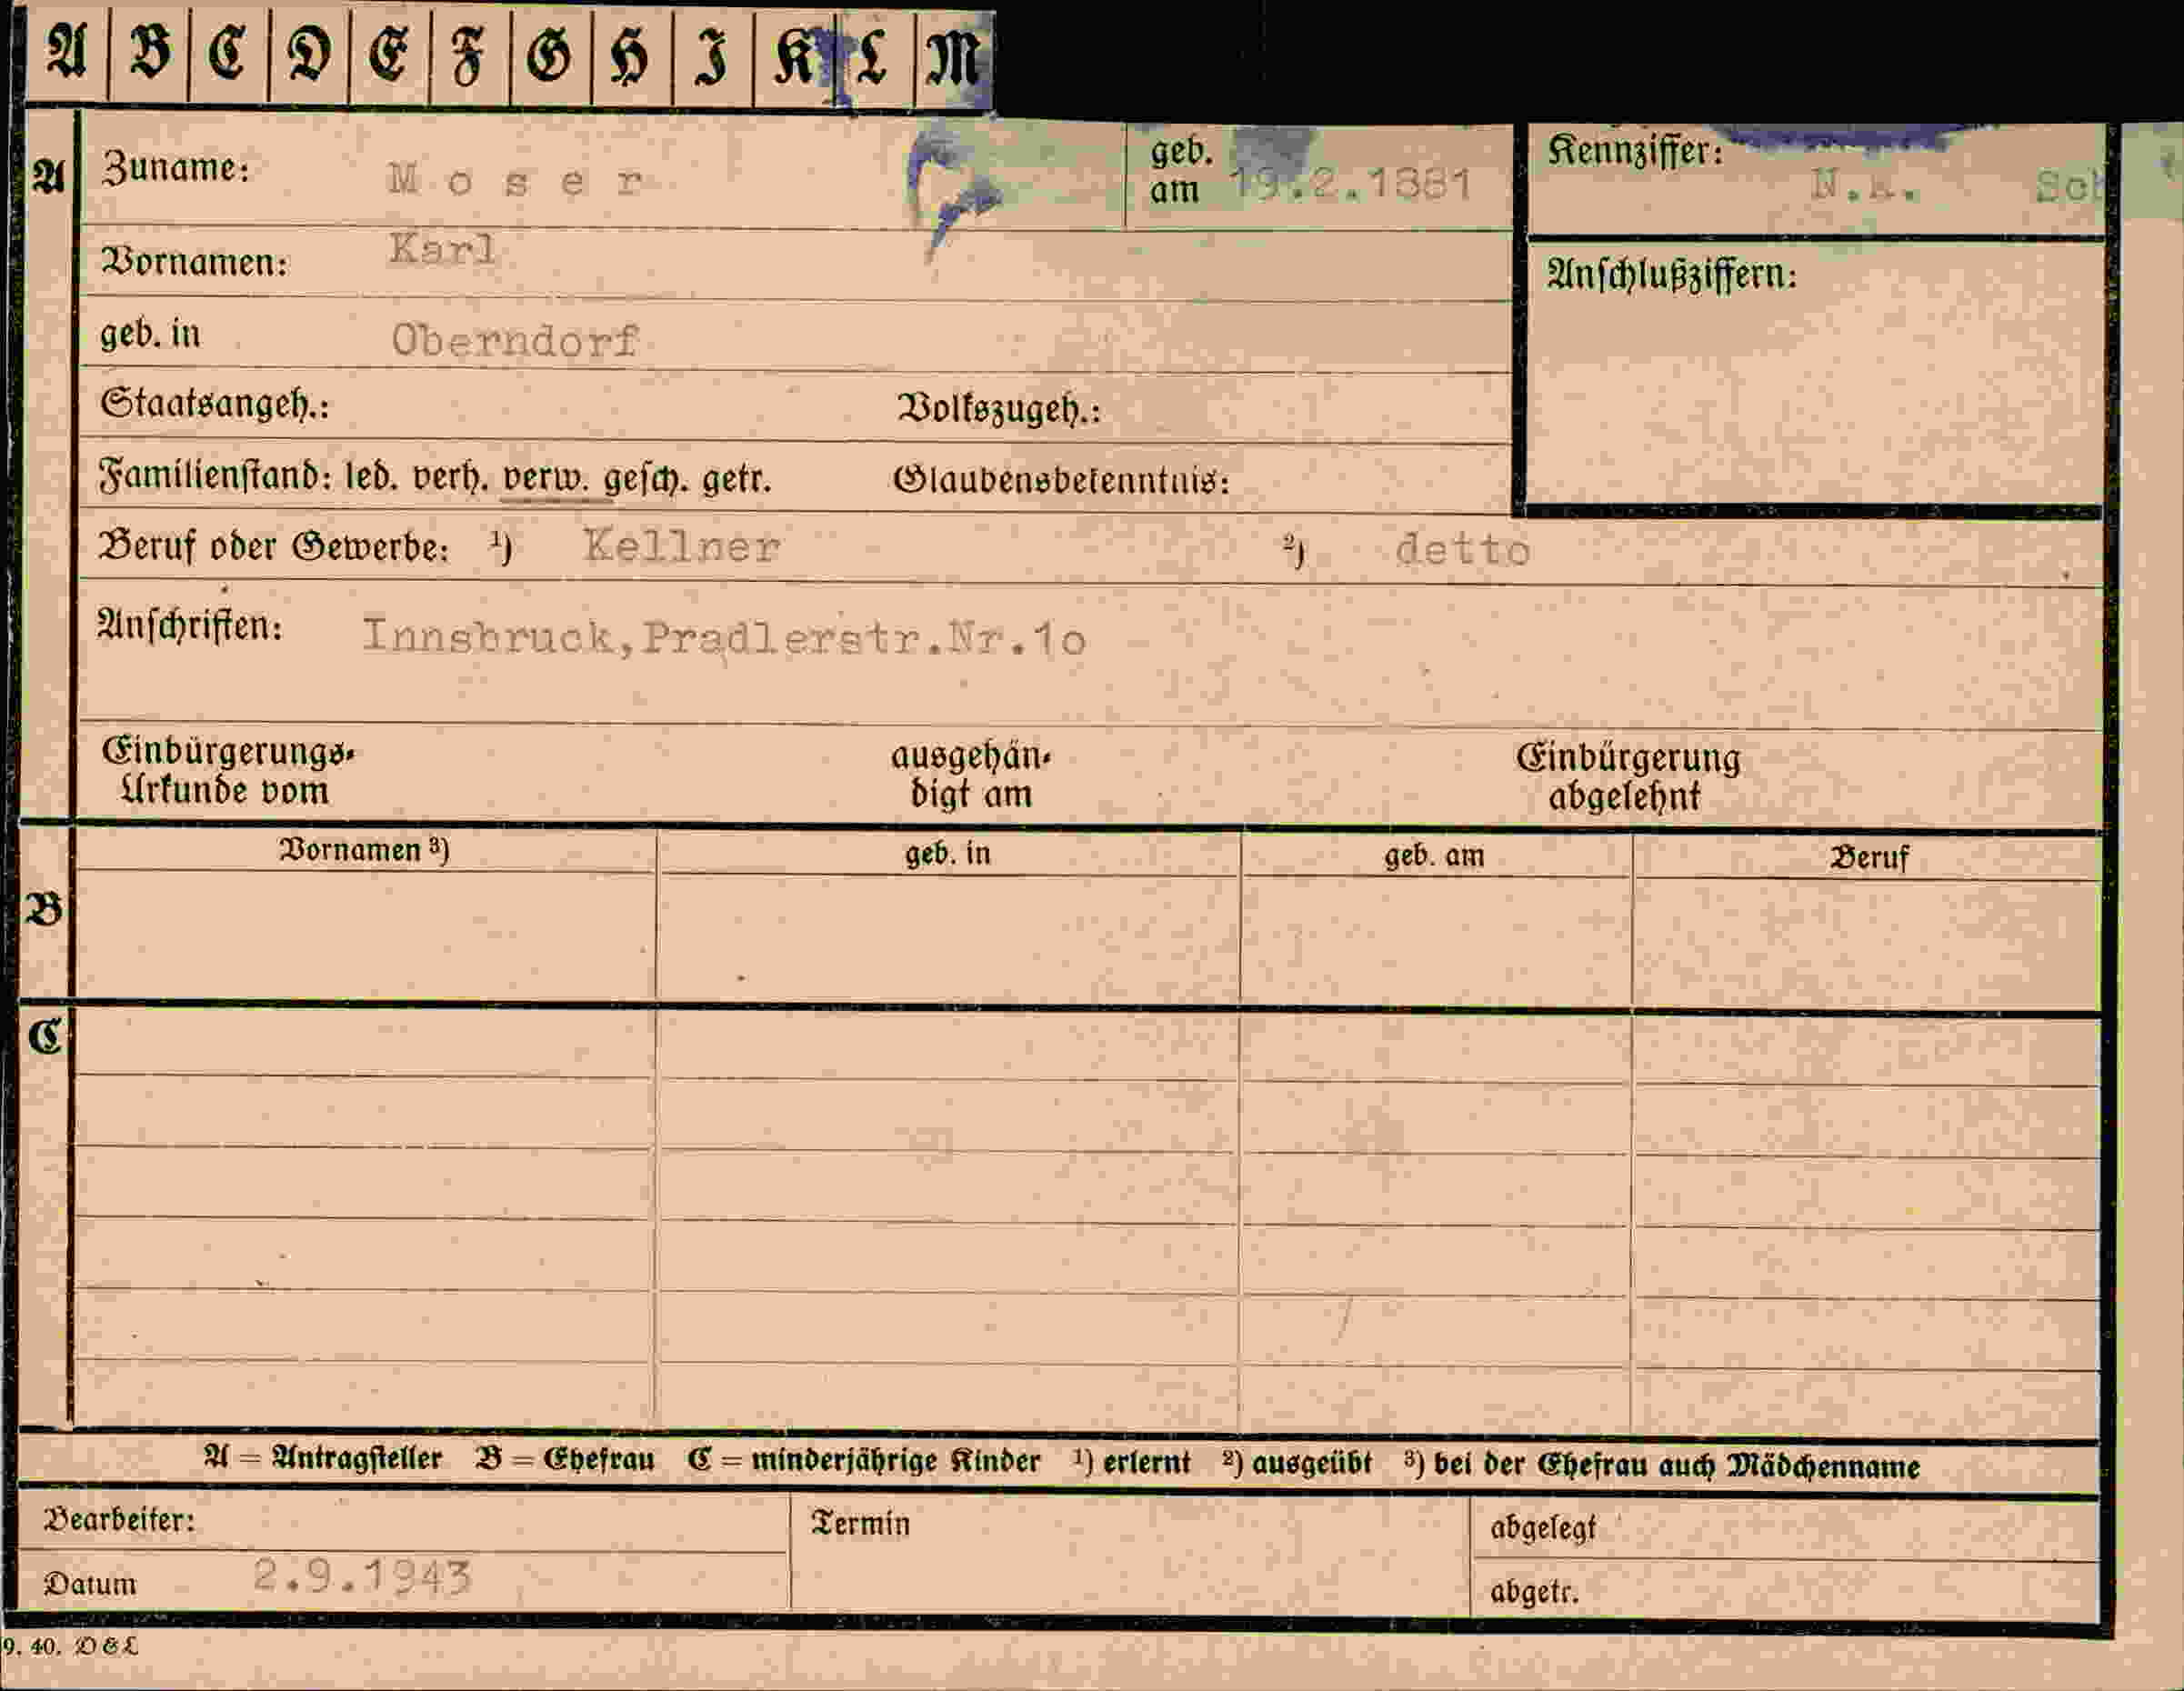 A B C D E F G H I K L M
A Zuname: Moser geb. am 19.2.1881 Kennziffer:
Vornamen: Karl Anschlußziffern:
geb. in Oberndorf
Staatsangeh.: Volkszugeh.:
Familienstand: led. verh. verw. gesch. getr. Glaubensbekenntnis:
Beruf oder Gewerbe: ¹) Kellner ²) detto
Anschriften: Innsbruck,Pradlerstr.Nr.1o
Einbürgerungs- ausgehän- Einbürgerung
Urkunde vom digt am abgelehnt
Vornamen ³) geb. in geb. am Beruf
B
C
A = Antragsteller B = Ehefrau C = minderjährige Kinder ¹) erlernt ²) ausgeübt ³) bei der Ehefrau auch Mädchenname
Bearbeiter: Termin abgelegt
Datum 2.9.1943 abgetr.
9. 40. D & L